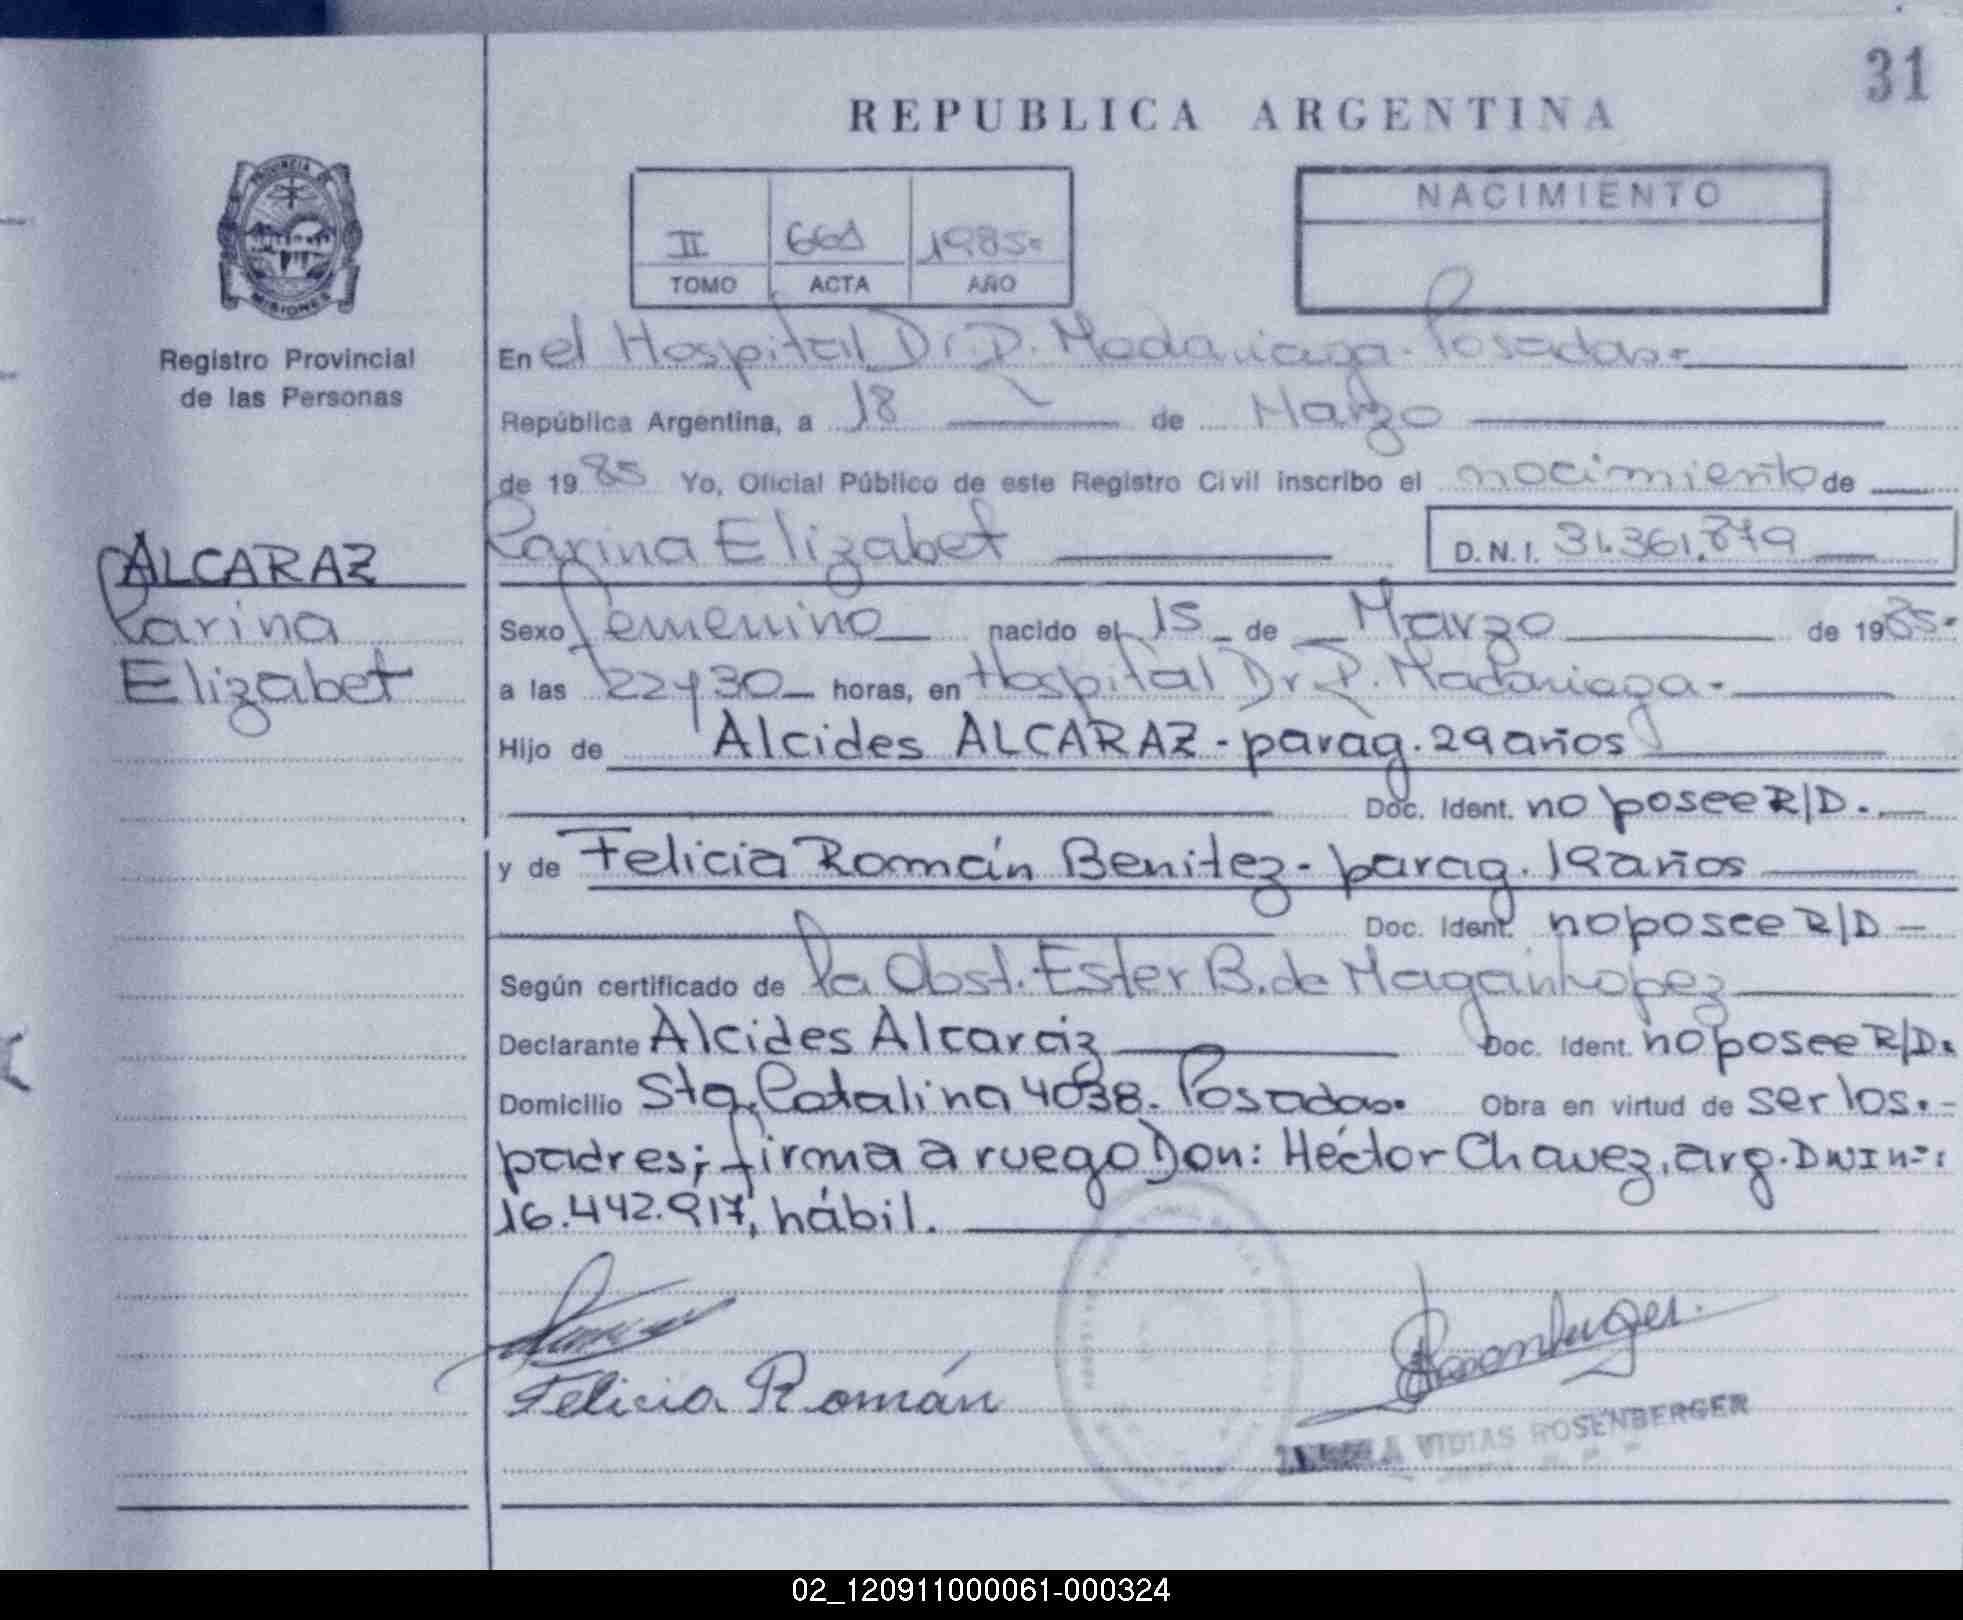 31
REPUBLICA ARGENTINA
PROVINCIA DE
MISIONES
II 661 1985.
TOMO ACTA AÑO
NACIMIENTO
Registro Provincial
de las Personas
ALCARAZ
Carina
Elizabet
En el Hospital Dr. P. Madariaga. Posadas.
República Argentina, a 18 de Marzo
de 1985 Yo, Oficial Público de este Registro Civil inscribo el nacimiento de
Carina Elizabet D.N.I. 31.361.879
Sexo femenino nacido el 15 de Marzo de 1985.
a las 22 y 30 horas, en Hospital Dr. P. Madariaga.
Hijo de Alcides ALCARAZ - parag. 29 años
Doc. Ident. no posee R/D.
y de Felicia Román Benitez - parag. 19 años
Doc. Ident. no posee R/D -
Según certificado de la Obst. Ester B. de
Declarante Alcides Alcaráz Doc. Ident. no posee R/D.
Domicilio Sta. Catalina 4038. Posadas. Obra en virtud de ser los.-
padres; firma a ruego Don: Héctor Chavez, arg.
16.442.917, hábil.
Felicia Román
VIDIAS ROSENBERGER
02_120911000061-000324